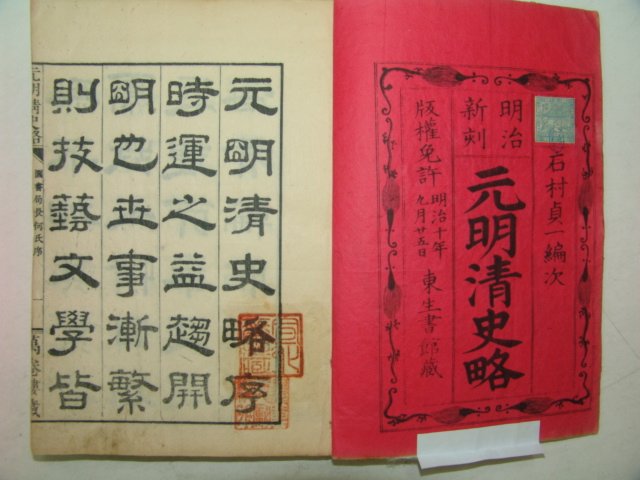 明治
新刻
石村貞一編次
元明清史略
版權免許
明治十年
九月廿五日
東生書館藏
元明清史略序
時運之益趨開
明也世事漸繁
則技藝文學皆
元明清史略
圖書局長何氏序
一
萬卷樓藏